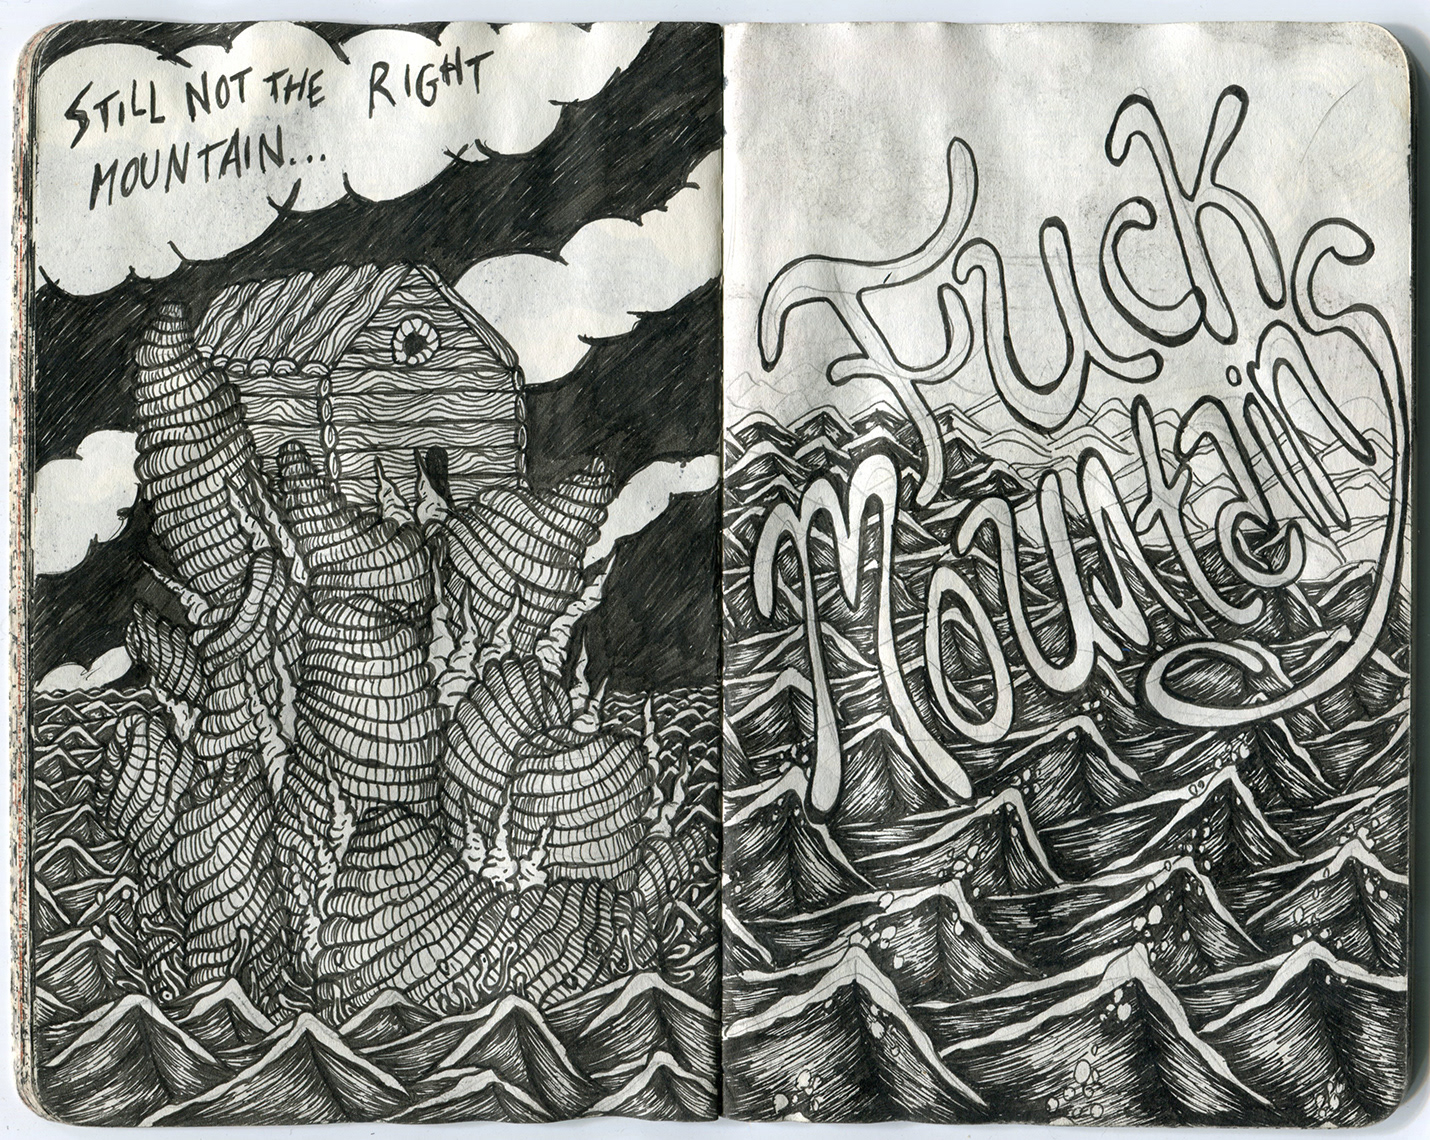 STILL NOT THE RIGHT
MOUNTAIN...
Fuck
Mountains